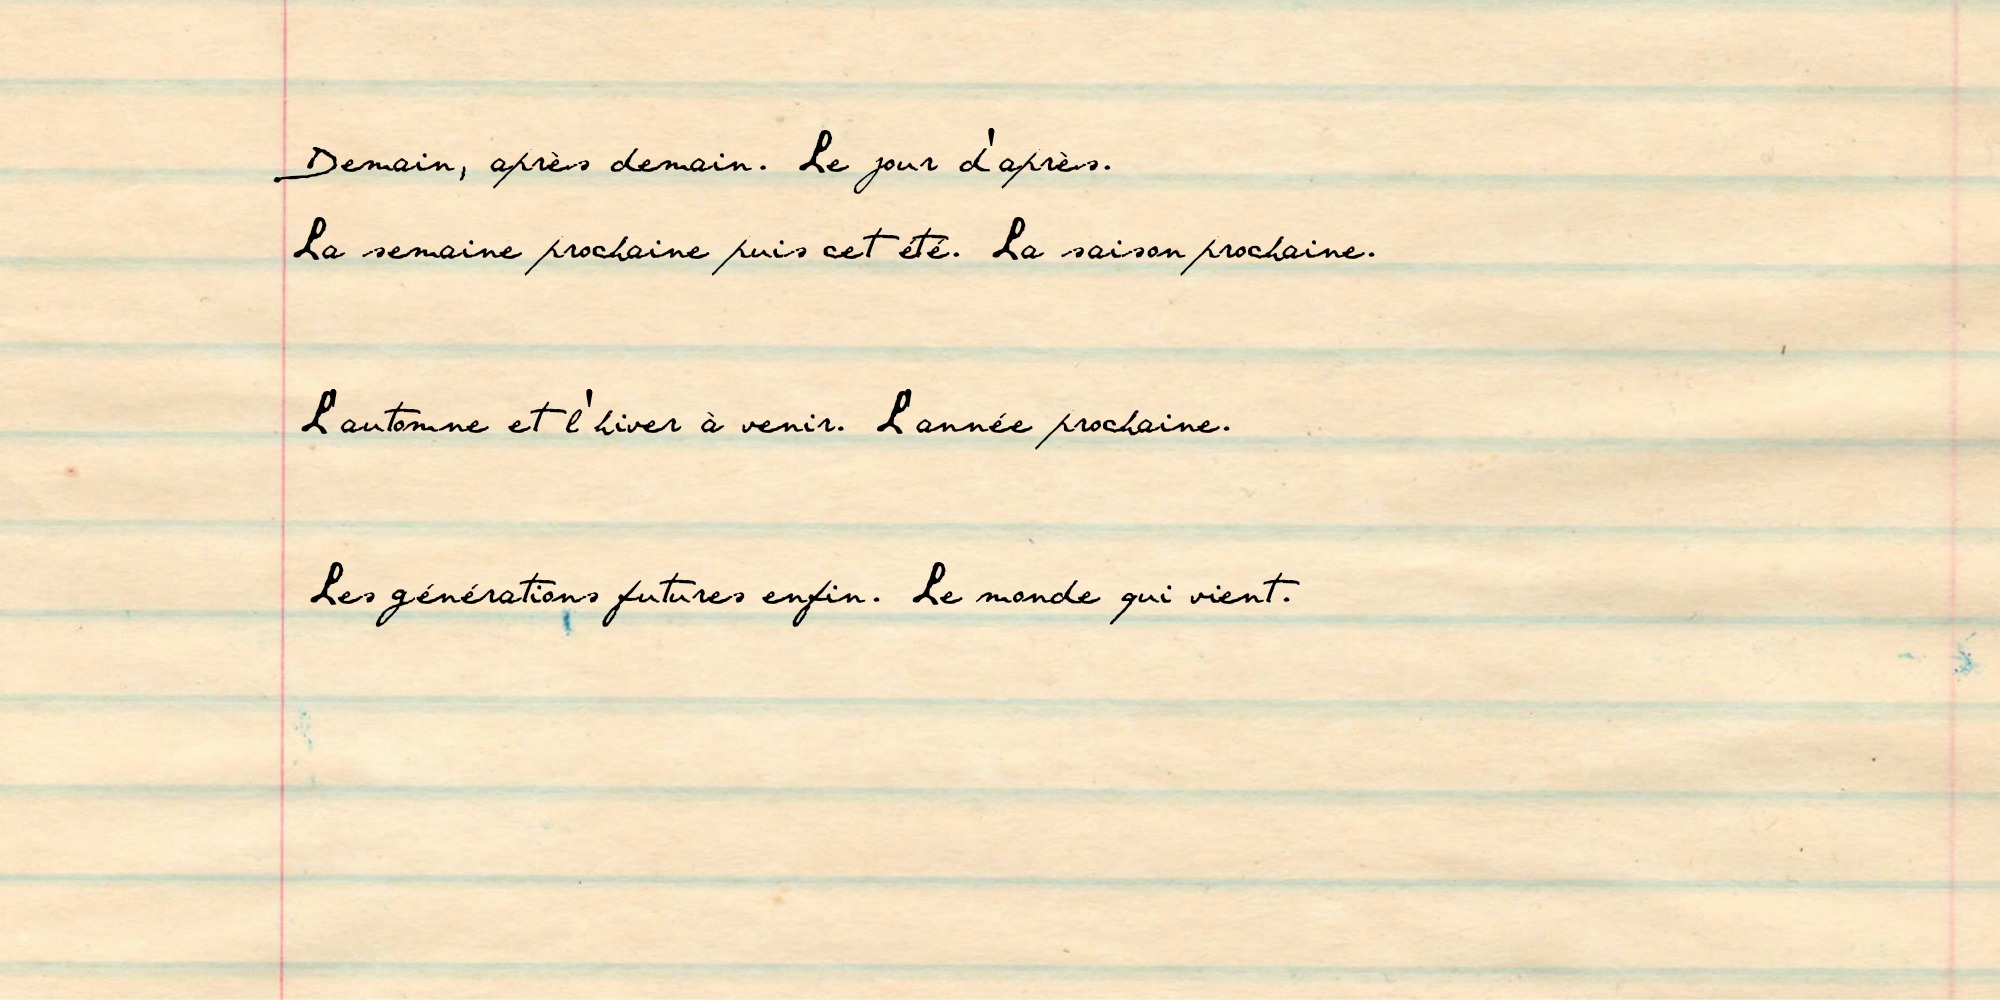 Demain, après demain. Le jour d'après.
La semaine prochaine puis cet été. La saison prochaine.
L'automne et l'hiver à venir. L'année prochaine.
Les générations futures enfin. Le monde qui vient.